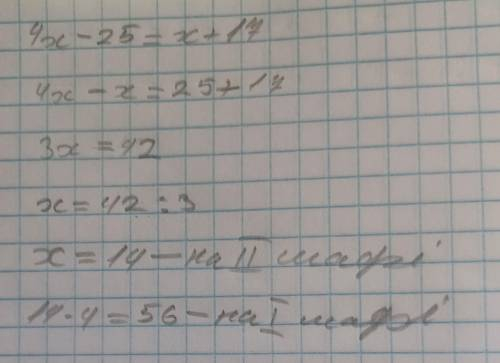 4x - 25 = x + 17
4x - x = 25 + 17
3x = 42
x = 42 : 3
x = 14 - на II шафі
14 · 4 = 56 - на I шафі